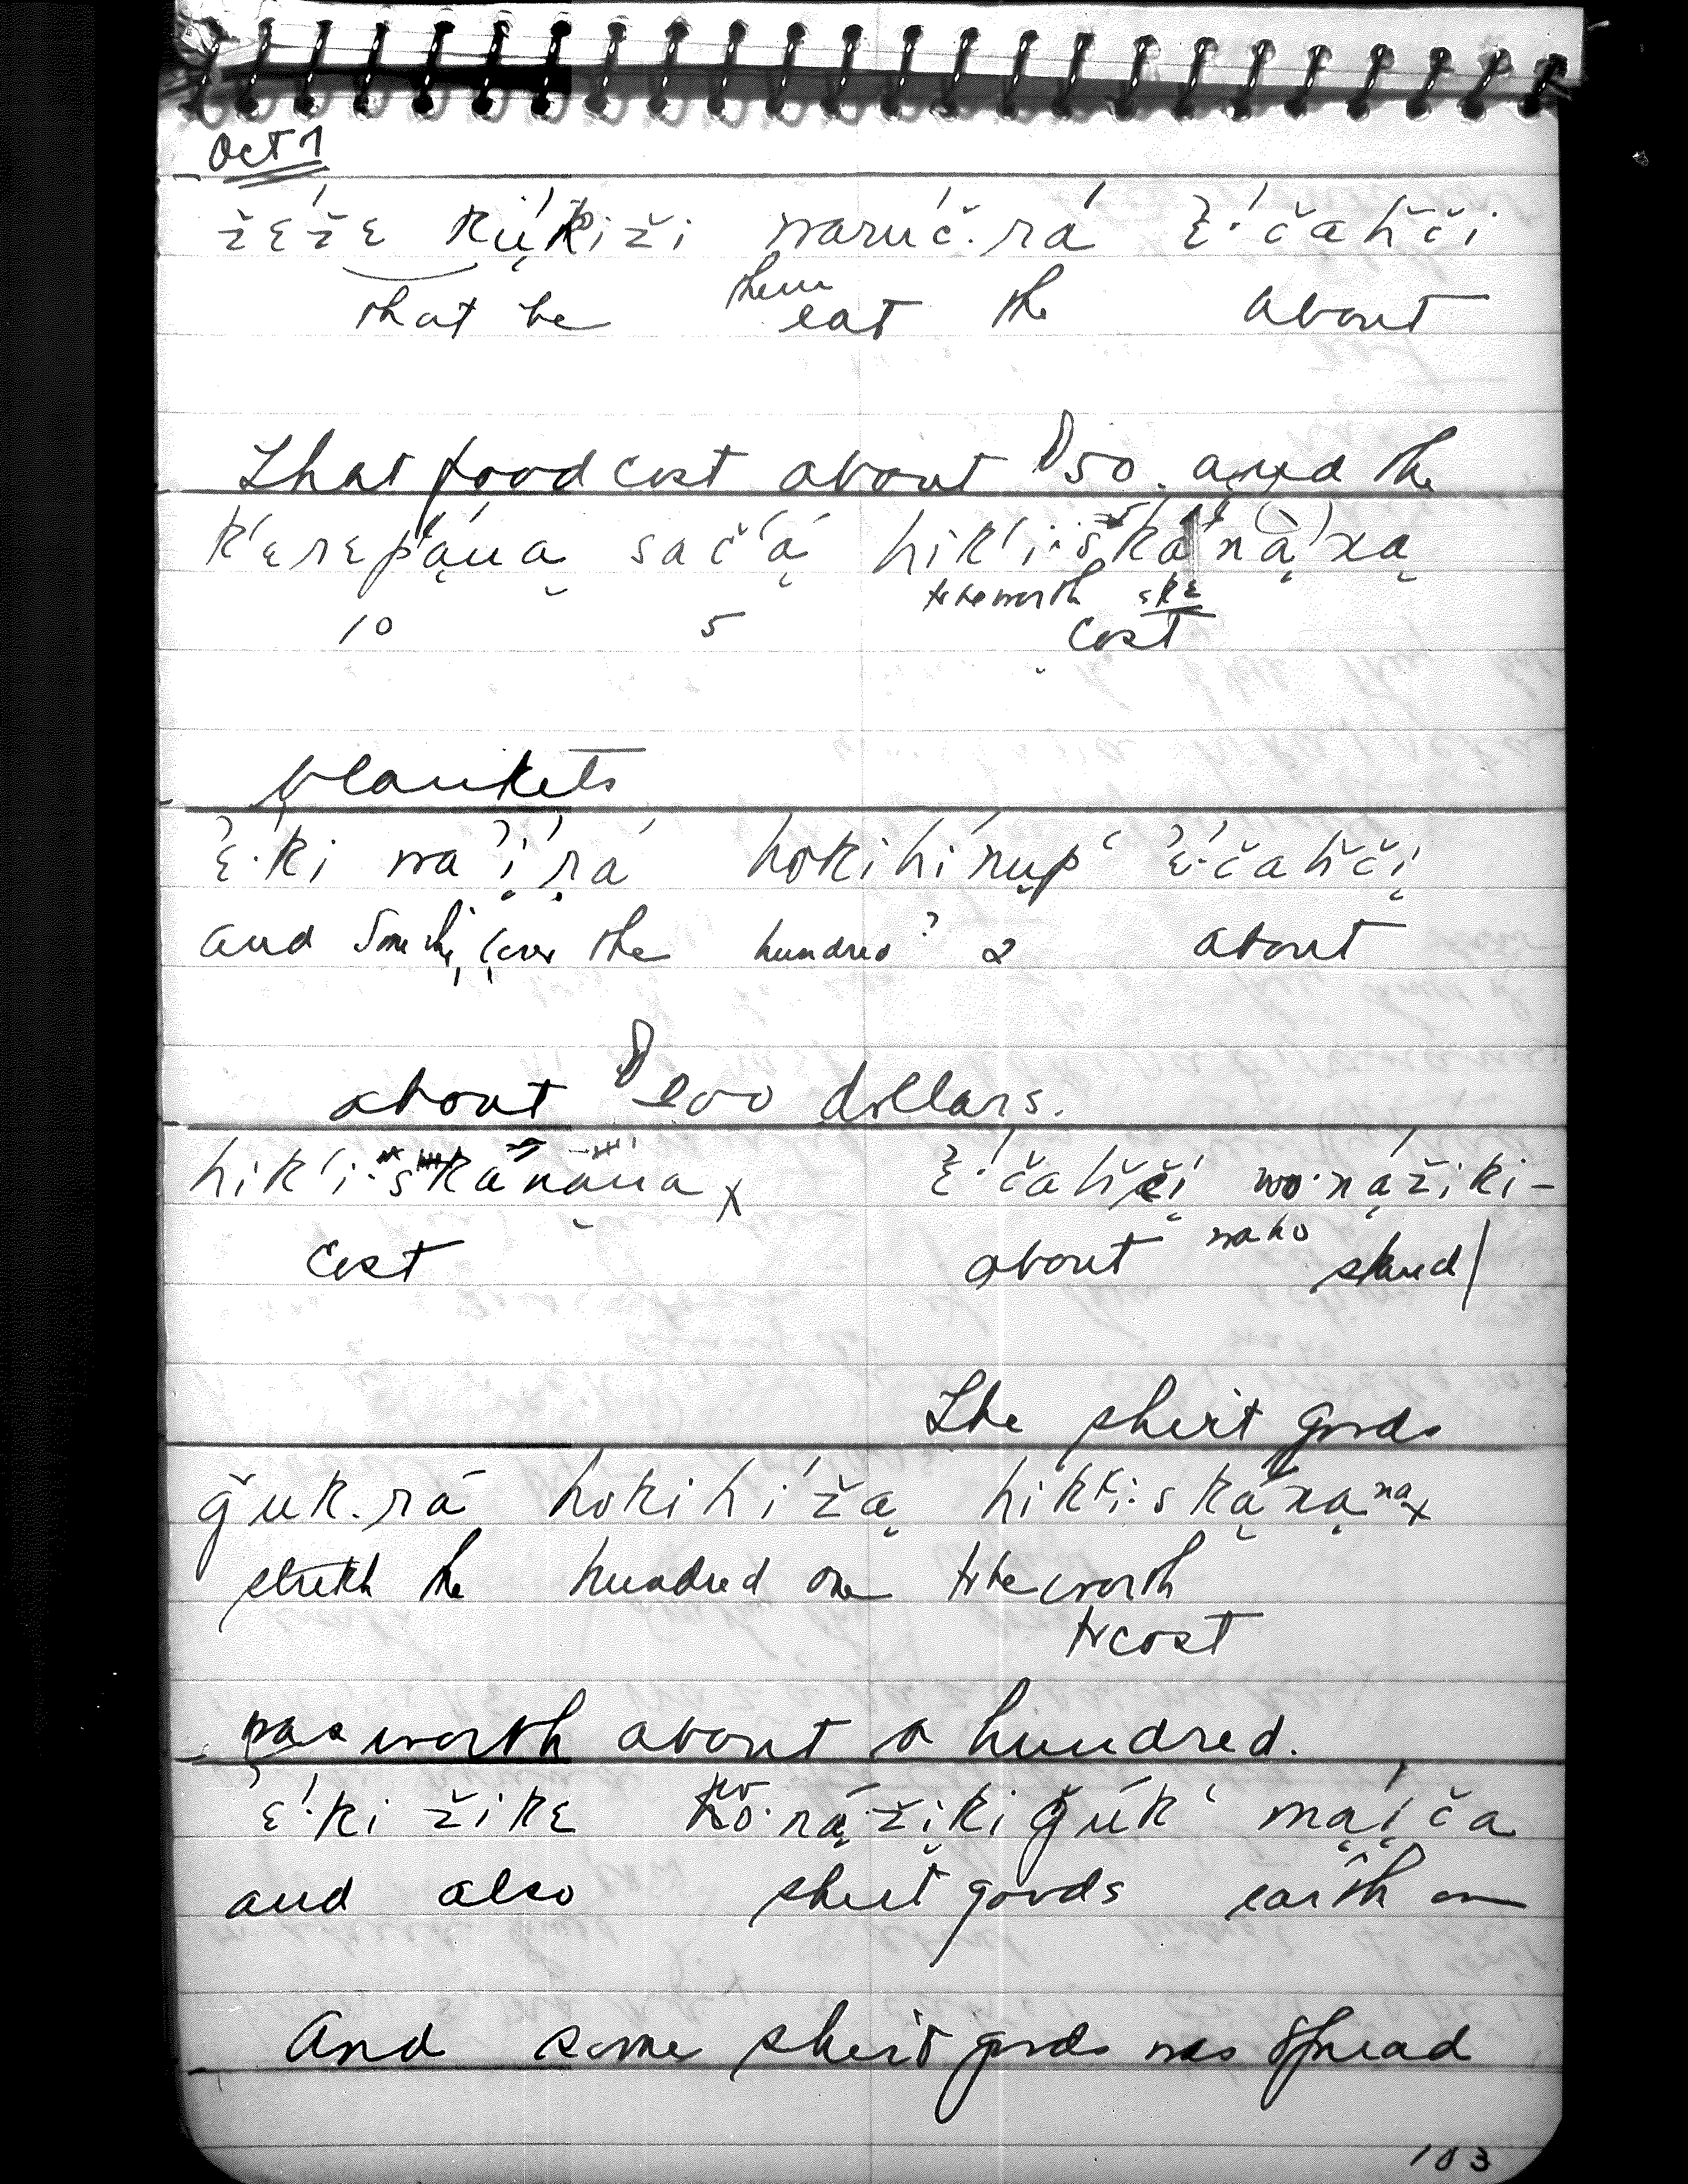 Oct 1
žέžε kų́kiži waruč.rá ᾿έ·čahčį
that be them eat the about
That food cost about $50. and the
k'εrεpą́ną sač'ą́ hik'í·skánąną
to be worth skε
10 5 cost
blankets
᾿έ·ki wa᾿į́rá hokihínųp‘ ᾿έ·čahčį
and Some the hundred? 2 about
about $200 dollars.
hik'í·skánąna x ᾿έ·čahčį wo·nążiki-
wako
cost about stand/
The shirt goods
ğuk.rá hokihížą hik'í·skánąna x
stretch the hundred one to be worth
to cost
was worth about a hundred.
᾿έ·ki žikε wo·nážikiğúk‘ mąį́ča
and also shirt goods earth on
And some shirt goods was spread
103